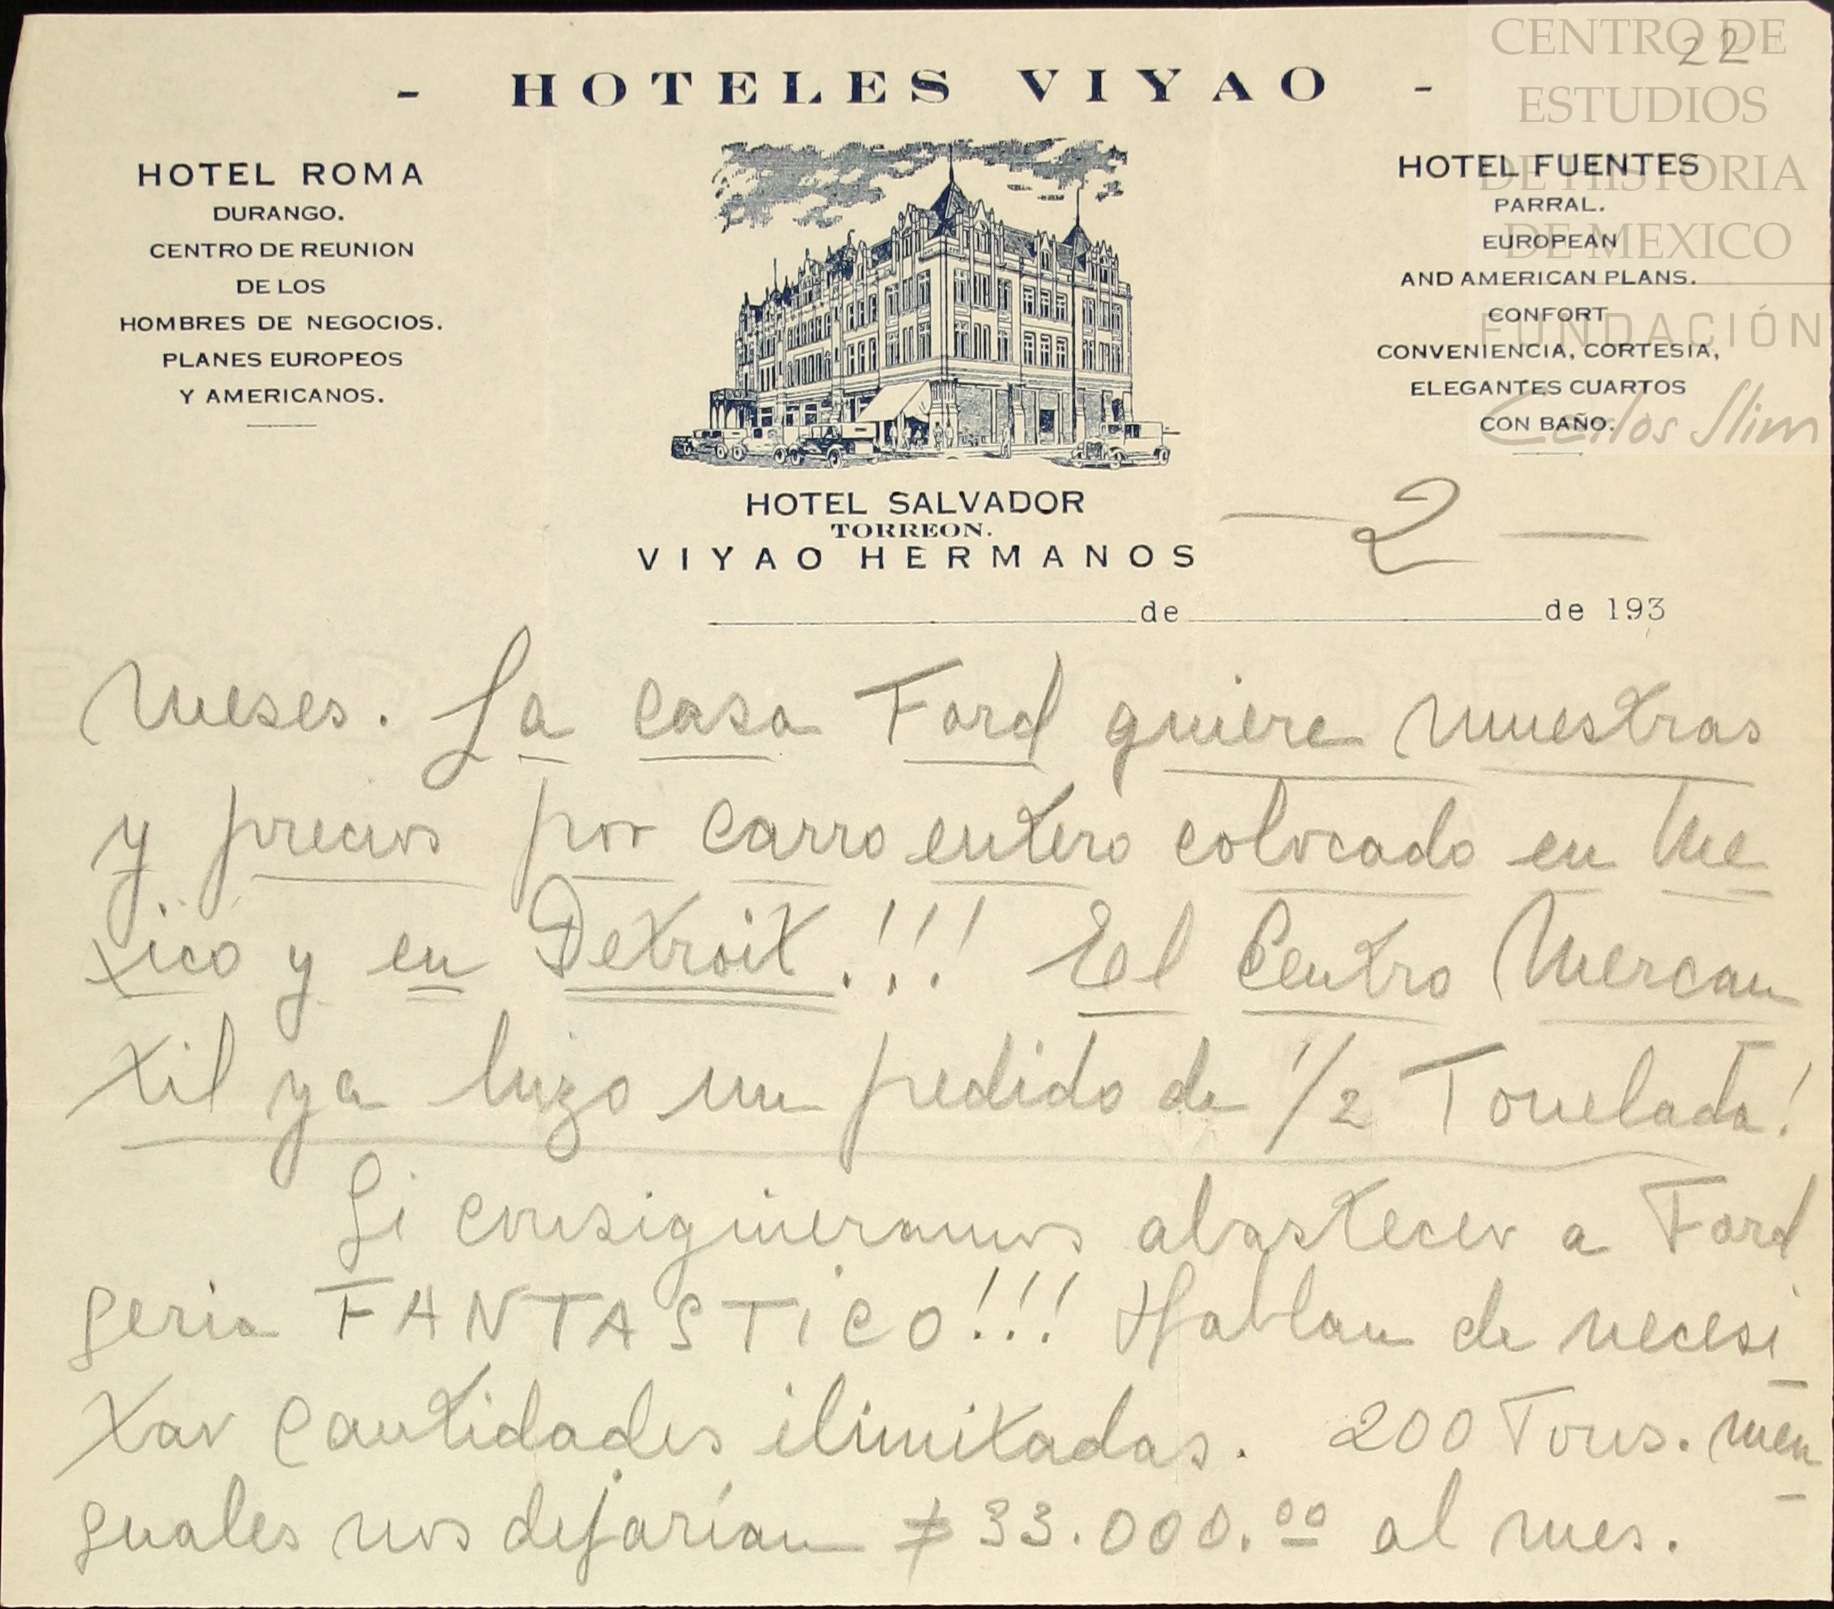 22
- HOTELES VIYAO -
HOTEL ROMA
DURANGO.
CENTRO DE REUNION
DE LOS
HOMBRES DE NEGOCIOS.
PLANES EUROPEOS
Y AMERICANOS.
HOTEL FUENTES
PARRAL.
EUROPEAN
AND AMERICAN PLANS.
CONFORT
CONVENIENCIA, CORTESIA,
ELEGANTES CUARTOS
CON BAÑO.
CENTRO DE
ESTUDIOS
DE HISTORIA
DE MEXICO
FUNDACIÓN
Carlos Slim
HOTEL SALVADOR
TORREON.
VIYAO HERMANOS
— 2 —
de de 193
meses. La casa Ford quiere muestras
y precios por carro entero colocado en Me
xico y en Detroit!!! El Centro Mercan
til ya hizo un pedido de 1/2 Tonelada!
Si consiguieramos abastecer a Ford
seria FANTASTICO!!! Hablan de necesi
tar cantidades ilimitadas. 200 Tons. men
suales nos dejarían $33.000.00 al mes.